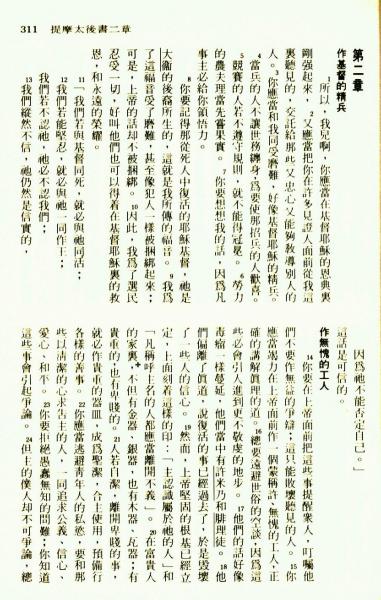 311 提摩太後書二章
第二章
作基督的精兵
1所以,我兒啊,你應當在基督耶穌的恩典裏
剛强起來,2又應當把你在許多見證人面前從我這
裏聽見的,交託給那些又忠心又能夠教導別人的
人。3你應當和我同受磨難,好像基督耶穌的精兵。4
當兵的人不讓世務纏身,爲要使那招兵的人歡喜。
5競賽的人若不遵守規則,就不能得冠冕。6勞力
的農夫理當先嘗果實。7你要想想我的話,因爲凡
事主必給你領悟力。
8你要記得那從死人中復活的耶穌基督,祂是
大衞的後裔所生的,這就是我所傳的福音。9我爲
了這福音受了磨難,甚至像犯人一樣被捆綁起來;
可是,上帝的話却不被捆綁。10因此,我爲了選民
忍受一切,好叫他們也可以得着在基督耶穌裏的救
恩,和永遠的榮耀。
11「我們若與基督同死,就必與祂同活;
12我們若能堅忍,就必與祂一同作王;
我們若不認祂,祂必不認我們;
13我們縱然不信,祂仍然是信實的,
因爲祂不能否定自己。」
這話是可信的。
作無愧的工人
14你要在上帝面前把這些事提醒衆人,叮囑他
們不要作無益的爭辯;這只能敗壞聽見的人。15你
應當竭力在上帝面前作一個蒙稱許、無愧的工人,正
確的講解眞理的道。16總要遠避世俗的空談,因爲這
些必會引人進到更不敬虔的地步。17他們的話好像
毒瘤一樣蔓延,他們當中有許米乃和腓理徒。18他
們偏離了眞道,說復活的事已經過去了,於是毀壞
了一些人的信心。19然而,上帝堅固的根基已經立
定,上面刻着這樣的印:「主認識屬於祂的人」和
「凡稱呼主名的人都應當離開不義」。20在富貴人
的家裏,不但有金器、銀器,也有木器、瓦器;有
貴重的,也有卑賤的。21人若自潔,離開卑賤的事,
就必作貴重的器皿,成爲聖潔,合主使用,預備行
各樣的善事。22你應當逃避靑年人的私慾,要和那
些以清潔的心求告主的人,一同追求公義、信心、
愛心、和平。23你要拒絕愚蠢無知的問難;你知道
這些事會引起爭論。24但主的僕人却不可爭論,總